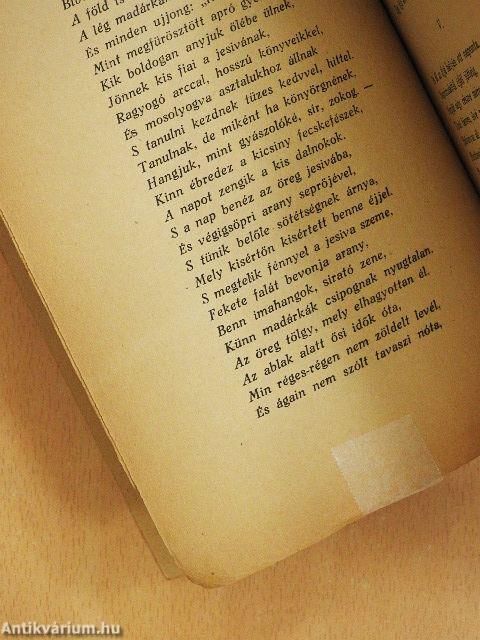 A föld is
A lég madárkái
És minden ujjong:
Mint megfürösztött apró
Kik boldogan anyjuk ölébe ülnek,
Jönnek kis fiai a jesivának,
Ragyogó arccal, hosszú könyveikkel,
És mosolyogva asztalukhoz állnak
S tanulni kezdnek tüzes kedvvel, hittel.
Tanulnak, de miként ha könyörgnének,
Hangjuk, mint gyászolóké, sír, zokog. —
Kinn ébredez a kicsiny fecskefészek,
A napot zengik a kis dalnokok.
S a nap benéz az öreg jesivába,
És végigsöpri arany seprőjével,
S tünik belőle sötétségnek árnya,
Mely kisértőn kisértett benne éjjel.
S megtelik fénnyel a jesiva szeme,
Fekete falát bevonja arany,
Benn imahangok, sirató zene,
Künn madárkák csipognak nyugtalan.
Az öreg tölgy, mely elhagyottan él,
Az ablak alatt ősi idők óta,
Min réges-régen nem zöldelt levél,
És ágain nem szólt tavaszi nóta,
Antikvárium.hu